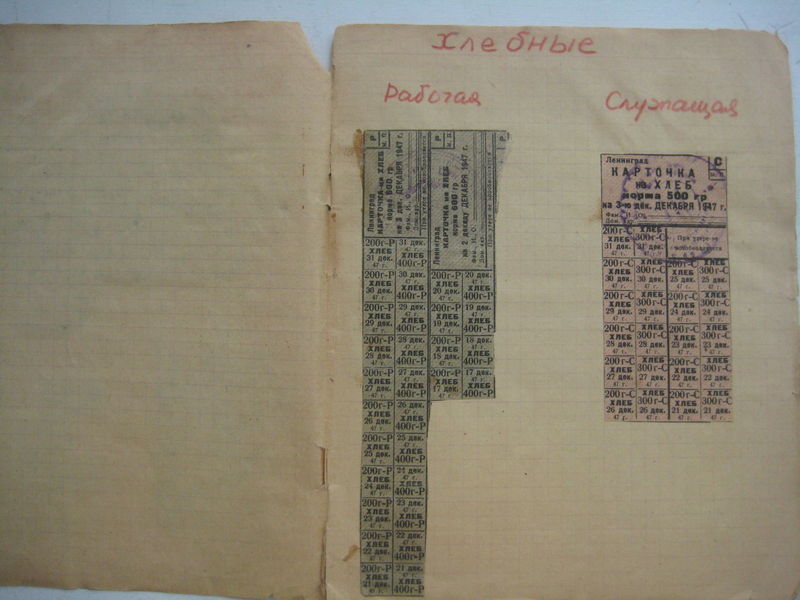 Хлебные
Рабочая
Служащая
Р
Ленинград
КАРТОЧКА на ХЛЕБ
норма 600 гр
на 3 дек. ДЕКАБРЯ 1947 г.
Фам., И., О.
200г-Р 31 дек.
ХЛЕБ 47 г.
31 дек. ХЛЕБ
47 г. 400г-Р
200г-Р 30 дек.
ХЛЕБ 47 г.
30 дек. ХЛЕБ
47 г. 400г-Р
200г-Р 29 дек.
ХЛЕБ 47 г.
29 дек. ХЛЕБ
47 г. 400г-Р
200г-Р 28 дек.
ХЛЕБ 47 г.
28 дек. ХЛЕБ
47 г. 400г-Р
200г-Р 27 дек.
ХЛЕБ 47 г.
27 дек. ХЛЕБ
47 г. 400г-Р
200г-Р 26 дек.
ХЛЕБ 47 г.
26 дек. ХЛЕБ
47 г. 400г-Р
200г-Р 25 дек.
ХЛЕБ 47 г.
25 дек. ХЛЕБ
47 г. 400г-Р
200г-Р 24 дек.
ХЛЕБ 47 г.
24 дек. ХЛЕБ
47 г. 400г-Р
200г-Р 23 дек.
ХЛЕБ 47 г.
23 дек. ХЛЕБ
47 г. 400г-Р
200г-Р 22 дек.
ХЛЕБ 47 г.
22 дек. ХЛЕБ
47 г. 400г-Р
200г-Р 21 дек.
ХЛЕБ 47 г.
21 дек. ХЛЕБ
47 г. 400г-Р
Р
Ленинград
КАРТОЧКА на ХЛЕБ
норма 600 гр
на 2 декаду ДЕКАБРЯ 1947 г.
Фам., И., О.
200г-Р 20 дек.
ХЛЕБ 47 г.
20 дек. ХЛЕБ
47 г. 400г-Р
200г-Р 19 дек.
ХЛЕБ 47 г.
19 дек. ХЛЕБ
47 г. 400г-Р
200г-Р 18 дек.
ХЛЕБ 47 г.
18 дек. ХЛЕБ
47 г. 400г-Р
200г-Р 17 дек.
ХЛЕБ 47 г.
17 дек. ХЛЕБ
47 г. 400г-Р
Ленинград С
КАРТОЧКА
на ХЛЕБ
норма 500 гр
на 3-ю дек. ДЕКАБРЯ 1947 г.
Фам. И. О.
При утере не
возобновляется
200г-С ХЛЕБ
ХЛЕБ 300г-С
31 дек. 31 дек.
47 г. 47 г.
200г-С ХЛЕБ 200г-С ХЛЕБ
ХЛЕБ 300г-С ХЛЕБ 300г-С
30 дек. 30 дек. 25 дек. 25 дек.
47 г. 47 г. 47 г. 47 г.
200г-С ХЛЕБ 200г-С ХЛЕБ
ХЛЕБ 300г-С ХЛЕБ 300г-С
29 дек. 29 дек. 24 дек. 24 дек.
47 г. 47 г. 47 г. 47 г.
200г-С ХЛЕБ 200г-С ХЛЕБ
ХЛЕБ 300г-С ХЛЕБ 300г-С
28 дек. 28 дек. 23 дек. 23 дек.
47 г. 47 г. 47 г. 47 г.
200г-С ХЛЕБ 200г-С ХЛЕБ
ХЛЕБ 300г-С ХЛЕБ 300г-С
27 дек. 27 дек. 22 дек. 22 дек.
47 г. 47 г. 47 г. 47 г.
200г-С ХЛЕБ 200г-С ХЛЕБ
ХЛЕБ 300г-С ХЛЕБ 300г-С
26 дек. 26 дек. 21 дек. 21 дек.
47 г. 47 г. 47 г. 47 г.